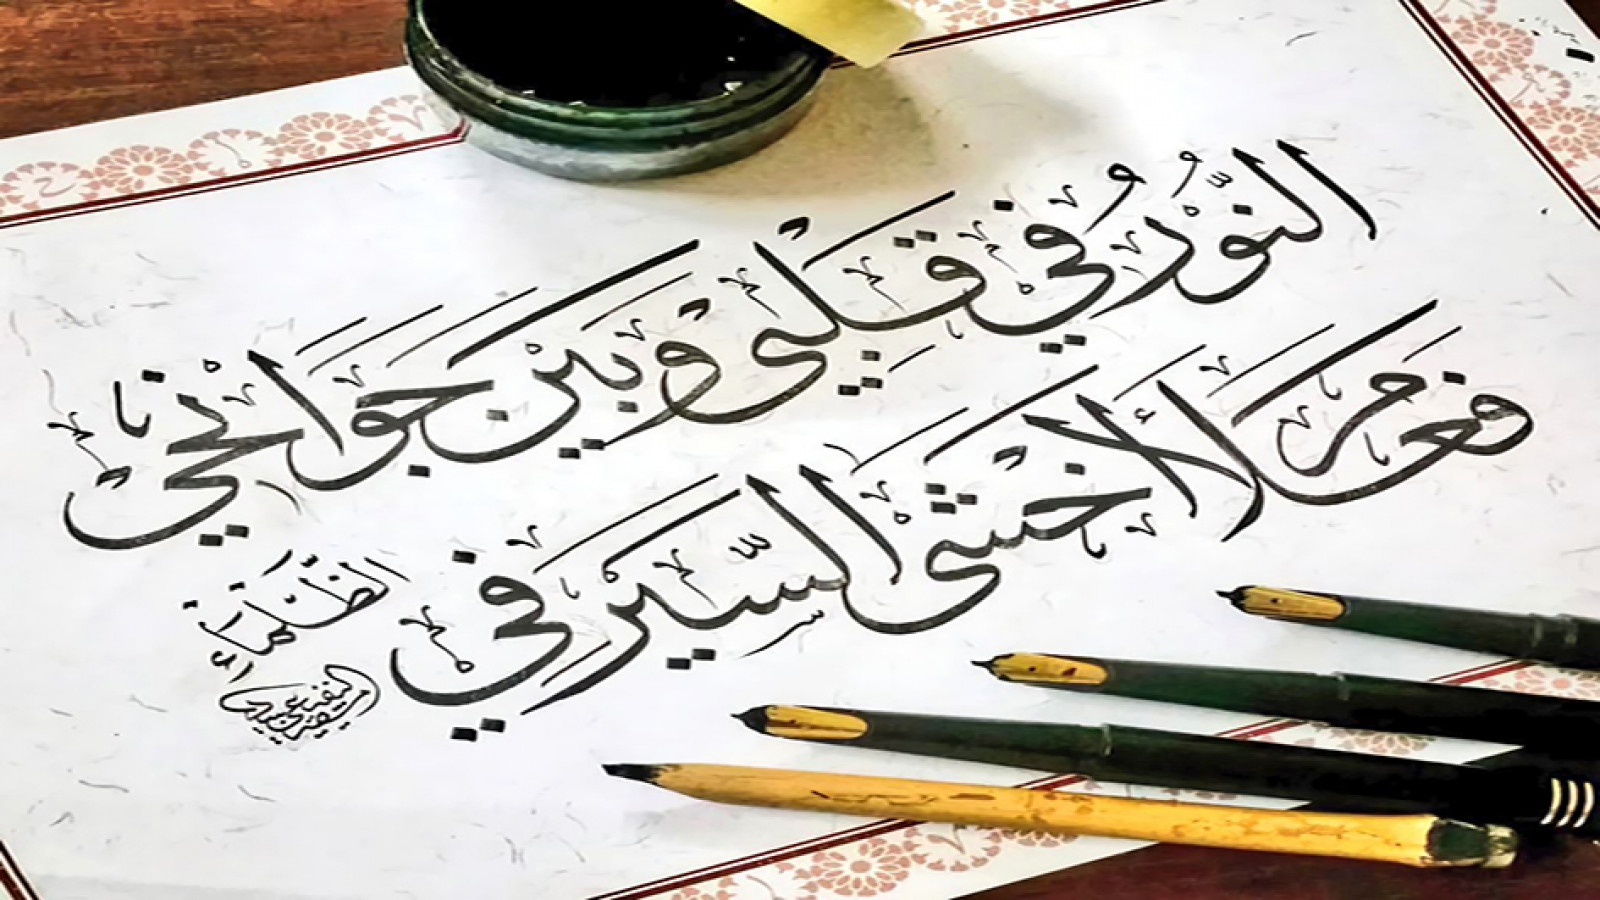 النُّوْرُ في قلبي وبين جوانحي
فعلام أخشى السّير في
الظّلماء